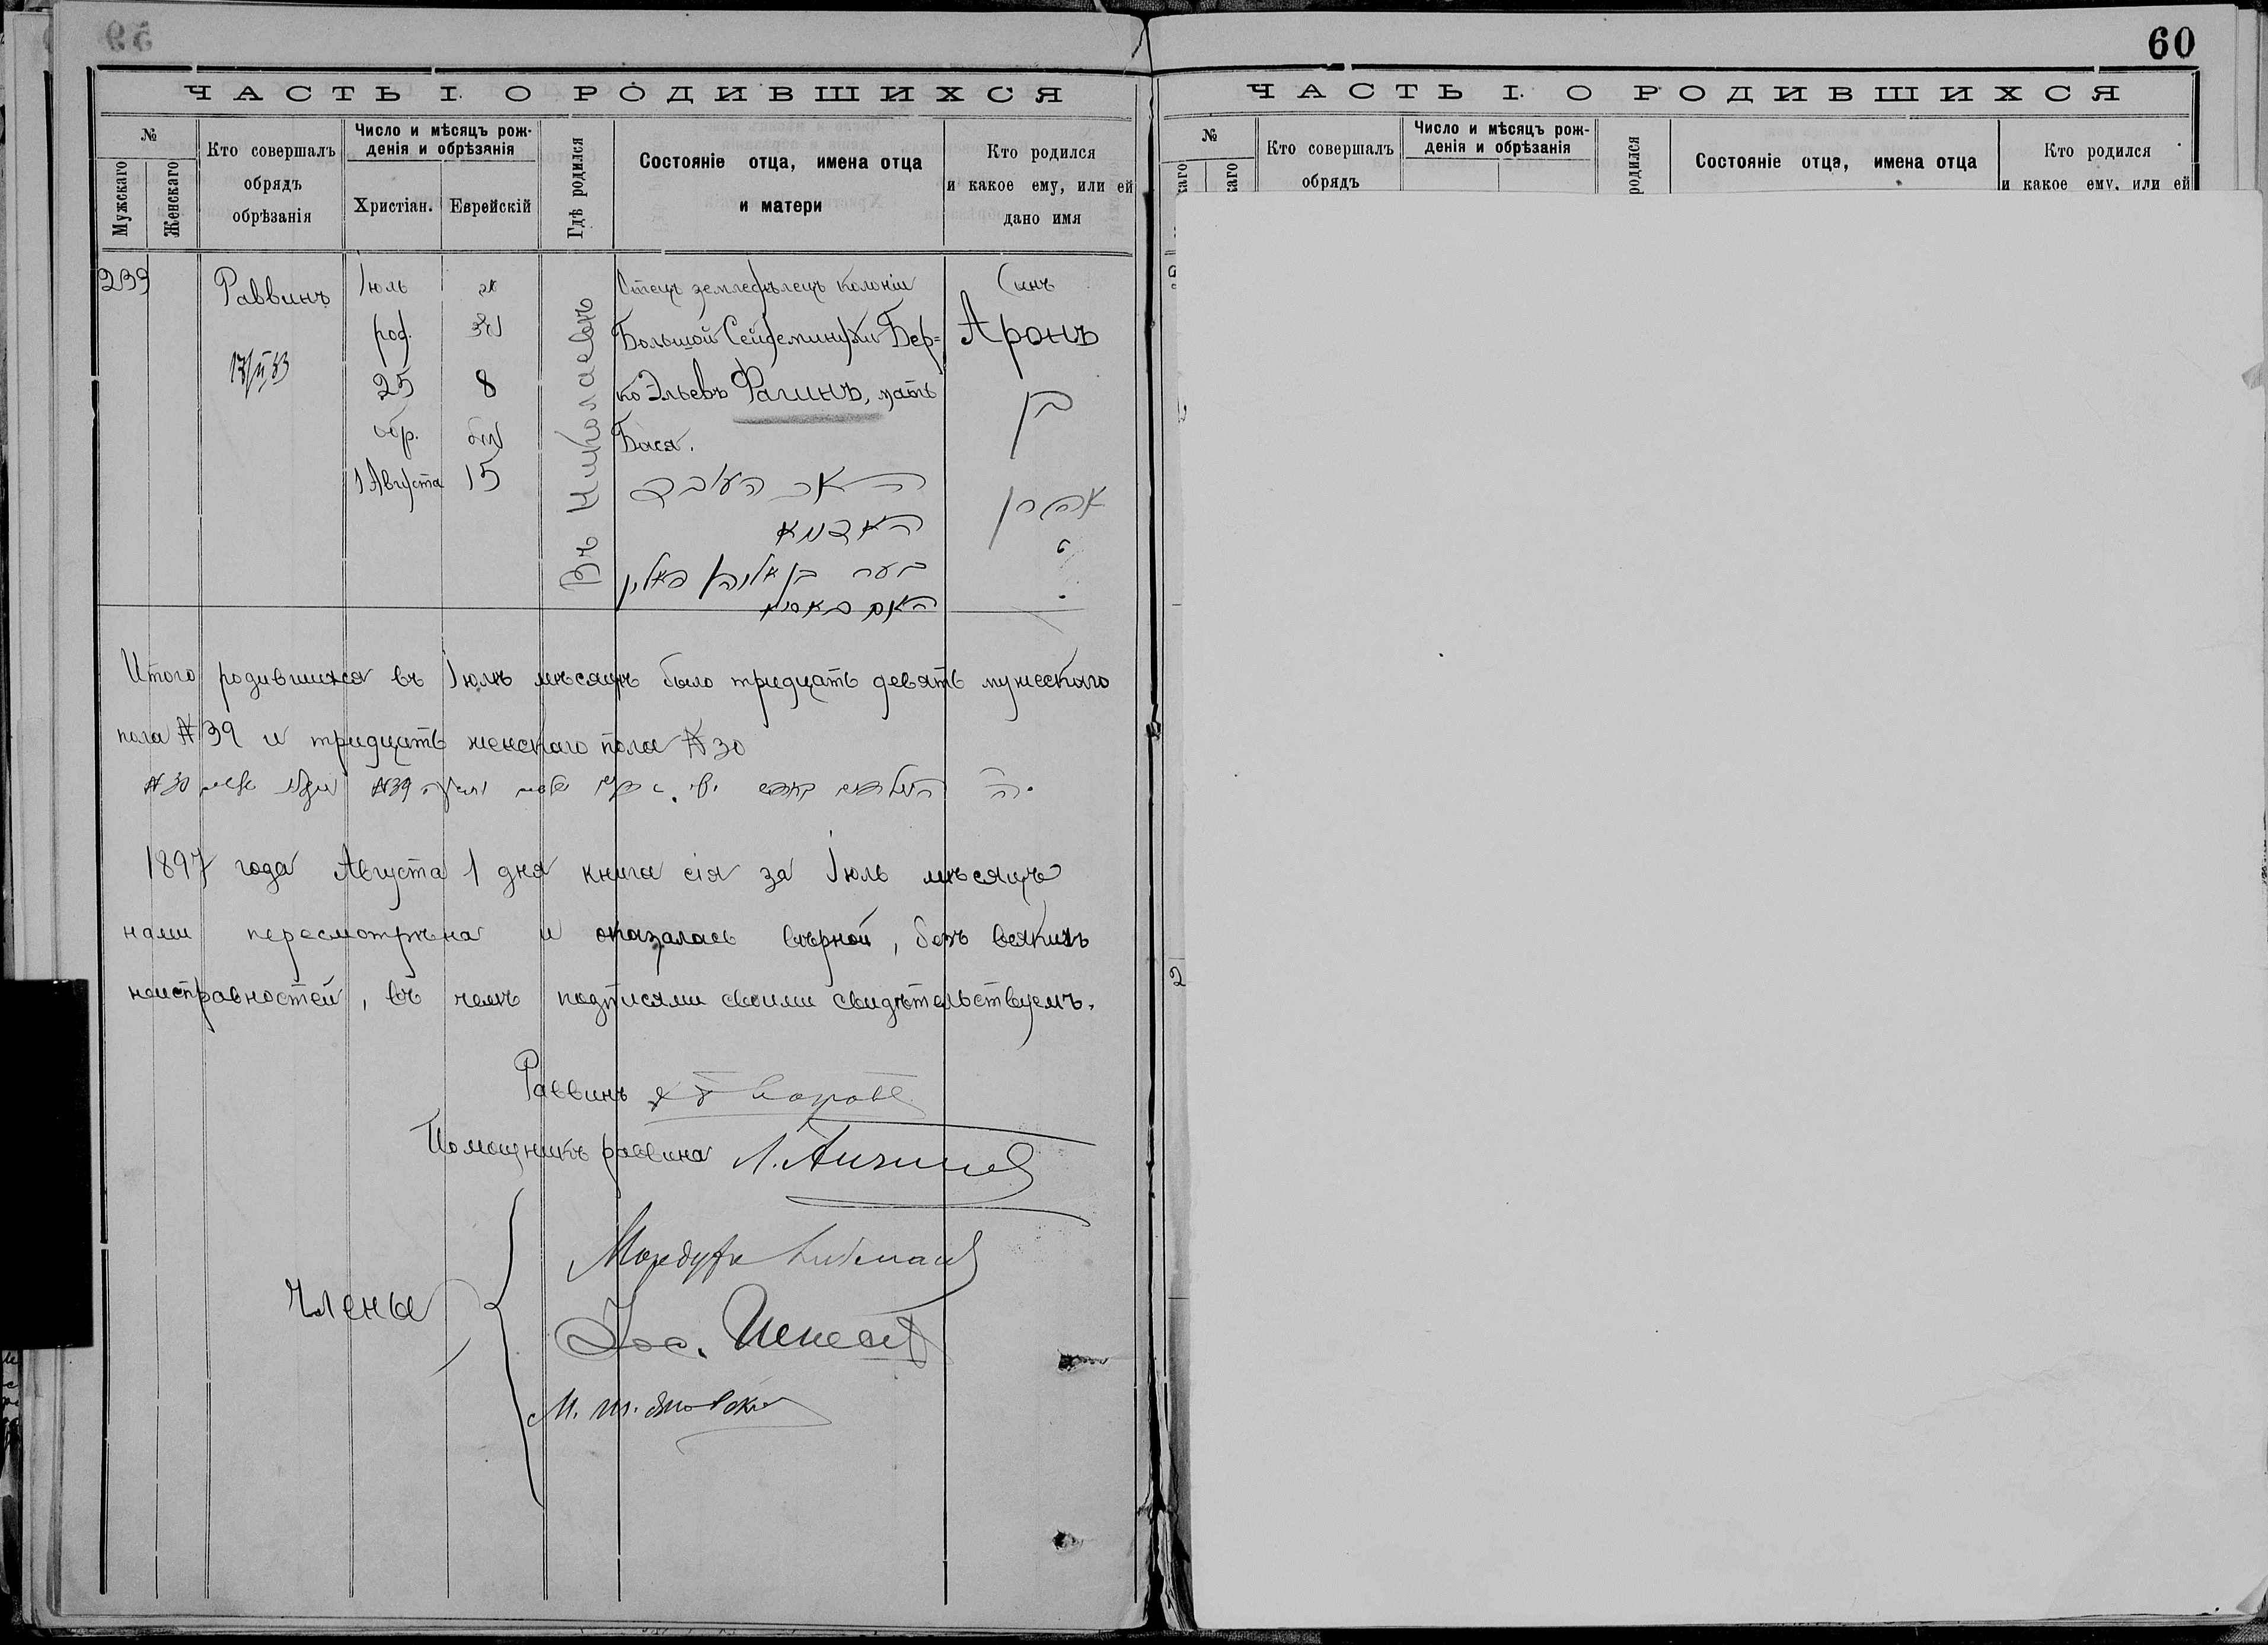 59
ЧАСТЬ I. О РОДИВШИХСЯ
№
Мужскаго
Женскаго
Кто совершалъ
обрядъ
обрѣзанія
Число и мѣсяцъ рож-
денія и обрѣзанія
Христіан.
Еврейскій
Гдѣ родился
Состояніе отца, имена отца
и матери
Кто родился
и какое ему, или ей
дано имя
239
Раввинъ
Іюль
род.
25
обр.
1 Августа
אב
8
15
Въ Николаевѣ
Отецъ земледѣлецъ колоніи
Большой Сейдеминухи Бер=
ко Эльевъ Фагинъ, мать
Бася.
האב העובד
האדמא
בערו בן אליהו פאגין
האם באסיא
Сынъ
Аронъ
בן
אהרן
Итого родившихся въ Іюлѣ мѣсяцѣ было тридцать девять мужескаго
пола № 39 и тридцать женскаго пола № 30
№ 39
№ 30
1897 года Августа 1 дня книга сія за Іюль мѣсяцъ
нами пересмотрѣна и оказалась вѣрной, безъ всякихъ
неисправностей, въ чемъ подписями своими свидѣтельствуемъ.
Раввинъ
Помощникъ раввина Л.
Члены
60
ЧАСТЬ I. О РОДИВШИХСЯ
№
Кто совершалъ
обрядъ
Число и мѣсяцъ рож-
денія и обрѣзанія
родился
Состояніе отца, имена отца
Кто родился
и какое ему, или ей
2